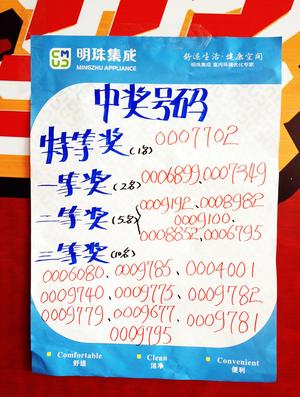 明珠集成
MINGZHU APPLIANCE
舒适生活·健康空间
明珠集成 室内环境优化专家
中奖号码
特等奖(1名) 0007702
一等奖(2名) 0006899、0007349
二等奖(5名) 0009192、0008982
0009100、
0008852、0006795
三等奖(10名)
0006080、0009785、0004001
0009740、0009775、0009782
0009779、0009677、0009781
0009795
Comfortable Clean Convenient
舒适 洁净 便利